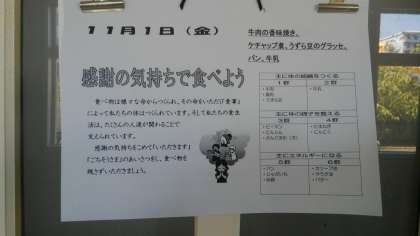 11月1日(金)
牛肉の香味焼き、
ケチャップ煮、うずら豆のグラッセ、
パン、牛乳
感謝の気持ちで食べよう
食べ物は様々な命からつくられ、その命をいただく食事
によって私たちの体はつくられています。そして私たちの食生
活は、たくさんの人達が関わることで
支えられています。
感謝の気持ちをこめて「いただきます」
「ごちそうさま」のあいさつをし、食べ物を
残さずいただきましょう。
主に体の組織をつくる
1群 2群
・牛肉 ・牛乳
主に体の調子を整える
3群 4群
・ピーマン ・たまねぎ
・にんじん ・にんにく
主にエネルギーになる
5群 6群
・パン
・じゃがいも
・砂糖 ・バター